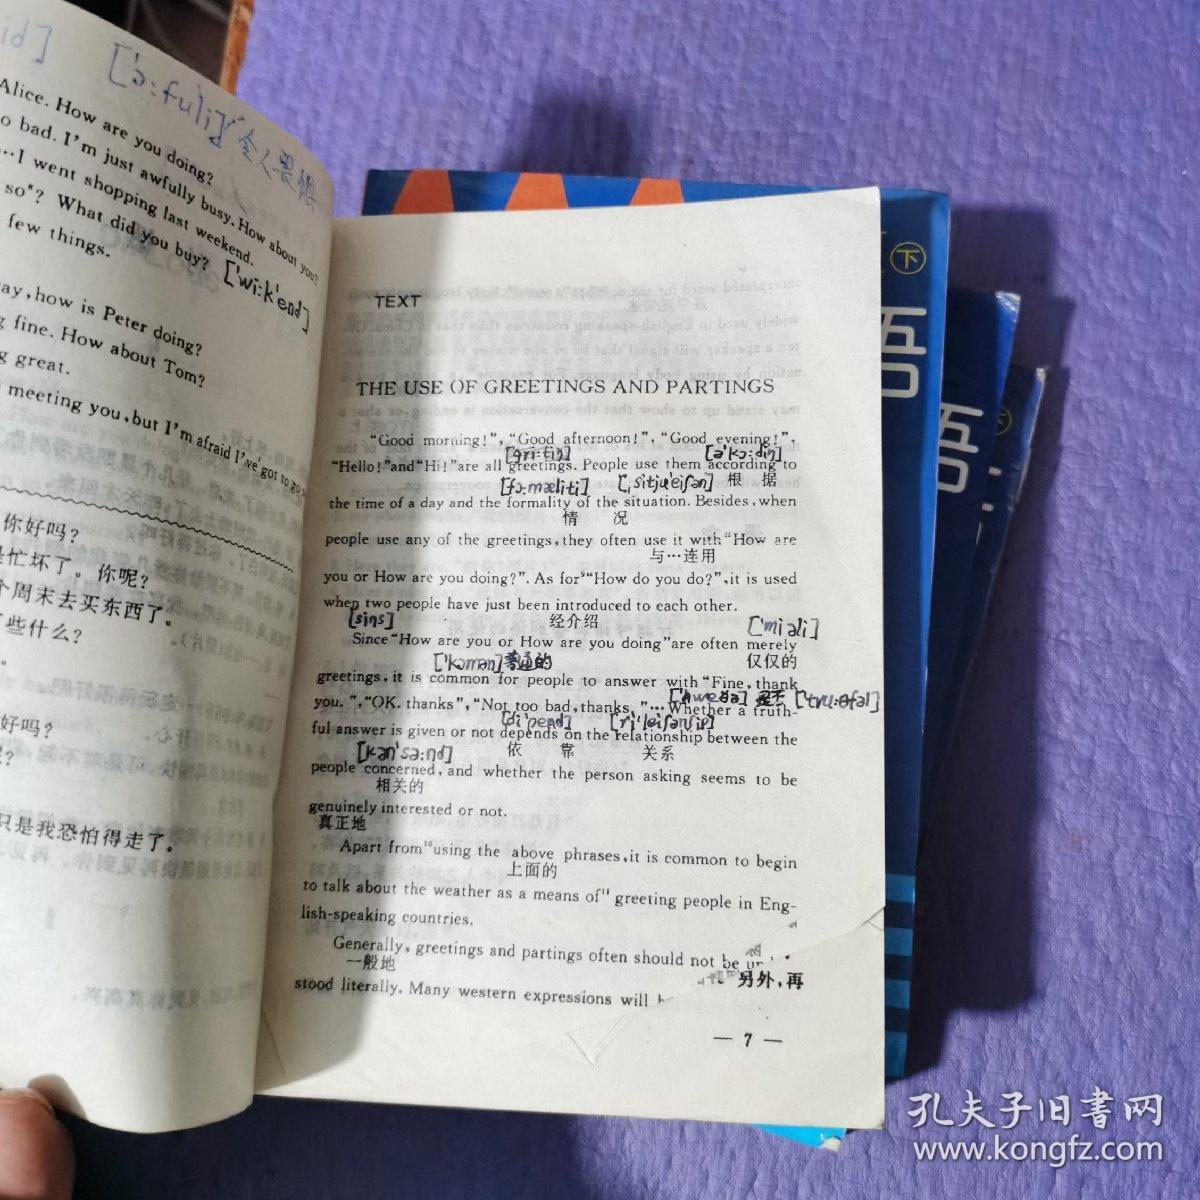 id]
['ɔ:fuli] 令人畏惧
Alice. How are you doing?
o bad. I'm just awfully busy. How about you?
…I went shopping last weekend.
so"? What did you buy?
['wi:k'end]
few things.
ay, how is Peter doing?
g fine. How about Tom?
g great.
meeting you, but I'm afraid I've got to go
你好吗?
是忙坏了。你呢?
个周末去买东西了。
些什么?
好吗?
只是我恐怕得走了。
TEXT
THE USE OF GREETINGS AND PARTINGS
"Good morning!", "Good afternoon!", "Good evening!",
[gri:tiŋ] [ə'kɔ:diŋ]
"Hello!" and "Hi!" are all greetings. People use them according to
[fɔ:mæliti] [,sitju'eiʃən] 根 据
the time of a day and the formality of the situation. Besides, when
情 况
people use any of the greetings, they often use it with "How are
与…连用
you or How are you doing?". As for⁹ "How do you do?", it is used
when two people have just been introduced to each other.
[sins] 经介绍 ['miəli]
Since "How are you or How are you doing" are often merely
['kɔmən] 普通的 仅仅的
greetings, it is common for people to answer with "Fine, thank
you.", "OK. thanks", "Not too bad, thanks."… Whether a truth-
['tru:θfəl]
[di'pend]
ful answer is given or not depends on the relationship between the
[kən'sə:nd] 依 靠 关系
people concerned, and whether the person asking seems to be
相关的
genuinely interested or not.
真正地
Apart from¹⁰ using the above phrases, it is common to begin
上面的
to talk about the weather as a means of¹¹ greeting people in Eng-
lish-speaking countries.
Generally, greetings and partings often should not be
一般地
stood literally. Many western expressions will
另外,再
— 7 —
下
语
语
下
孔夫子旧书网
www.kongfz.com